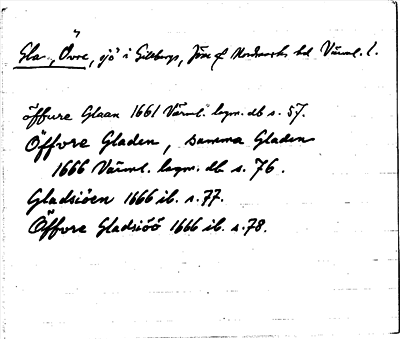 Gla, Övre, sjö i Gillbergs, Jösse o. Nordmarks hd Värml. l.
öffure Glaan 1661 Värml. lagm. db s. 57.
Öffore Gladen, samma Gladen
1666 Värml. lagm. db s. 76.
Gladsiöen 1666 ib. s. 77.
Öffore Gladsiöö 1666 ib. s. 78.